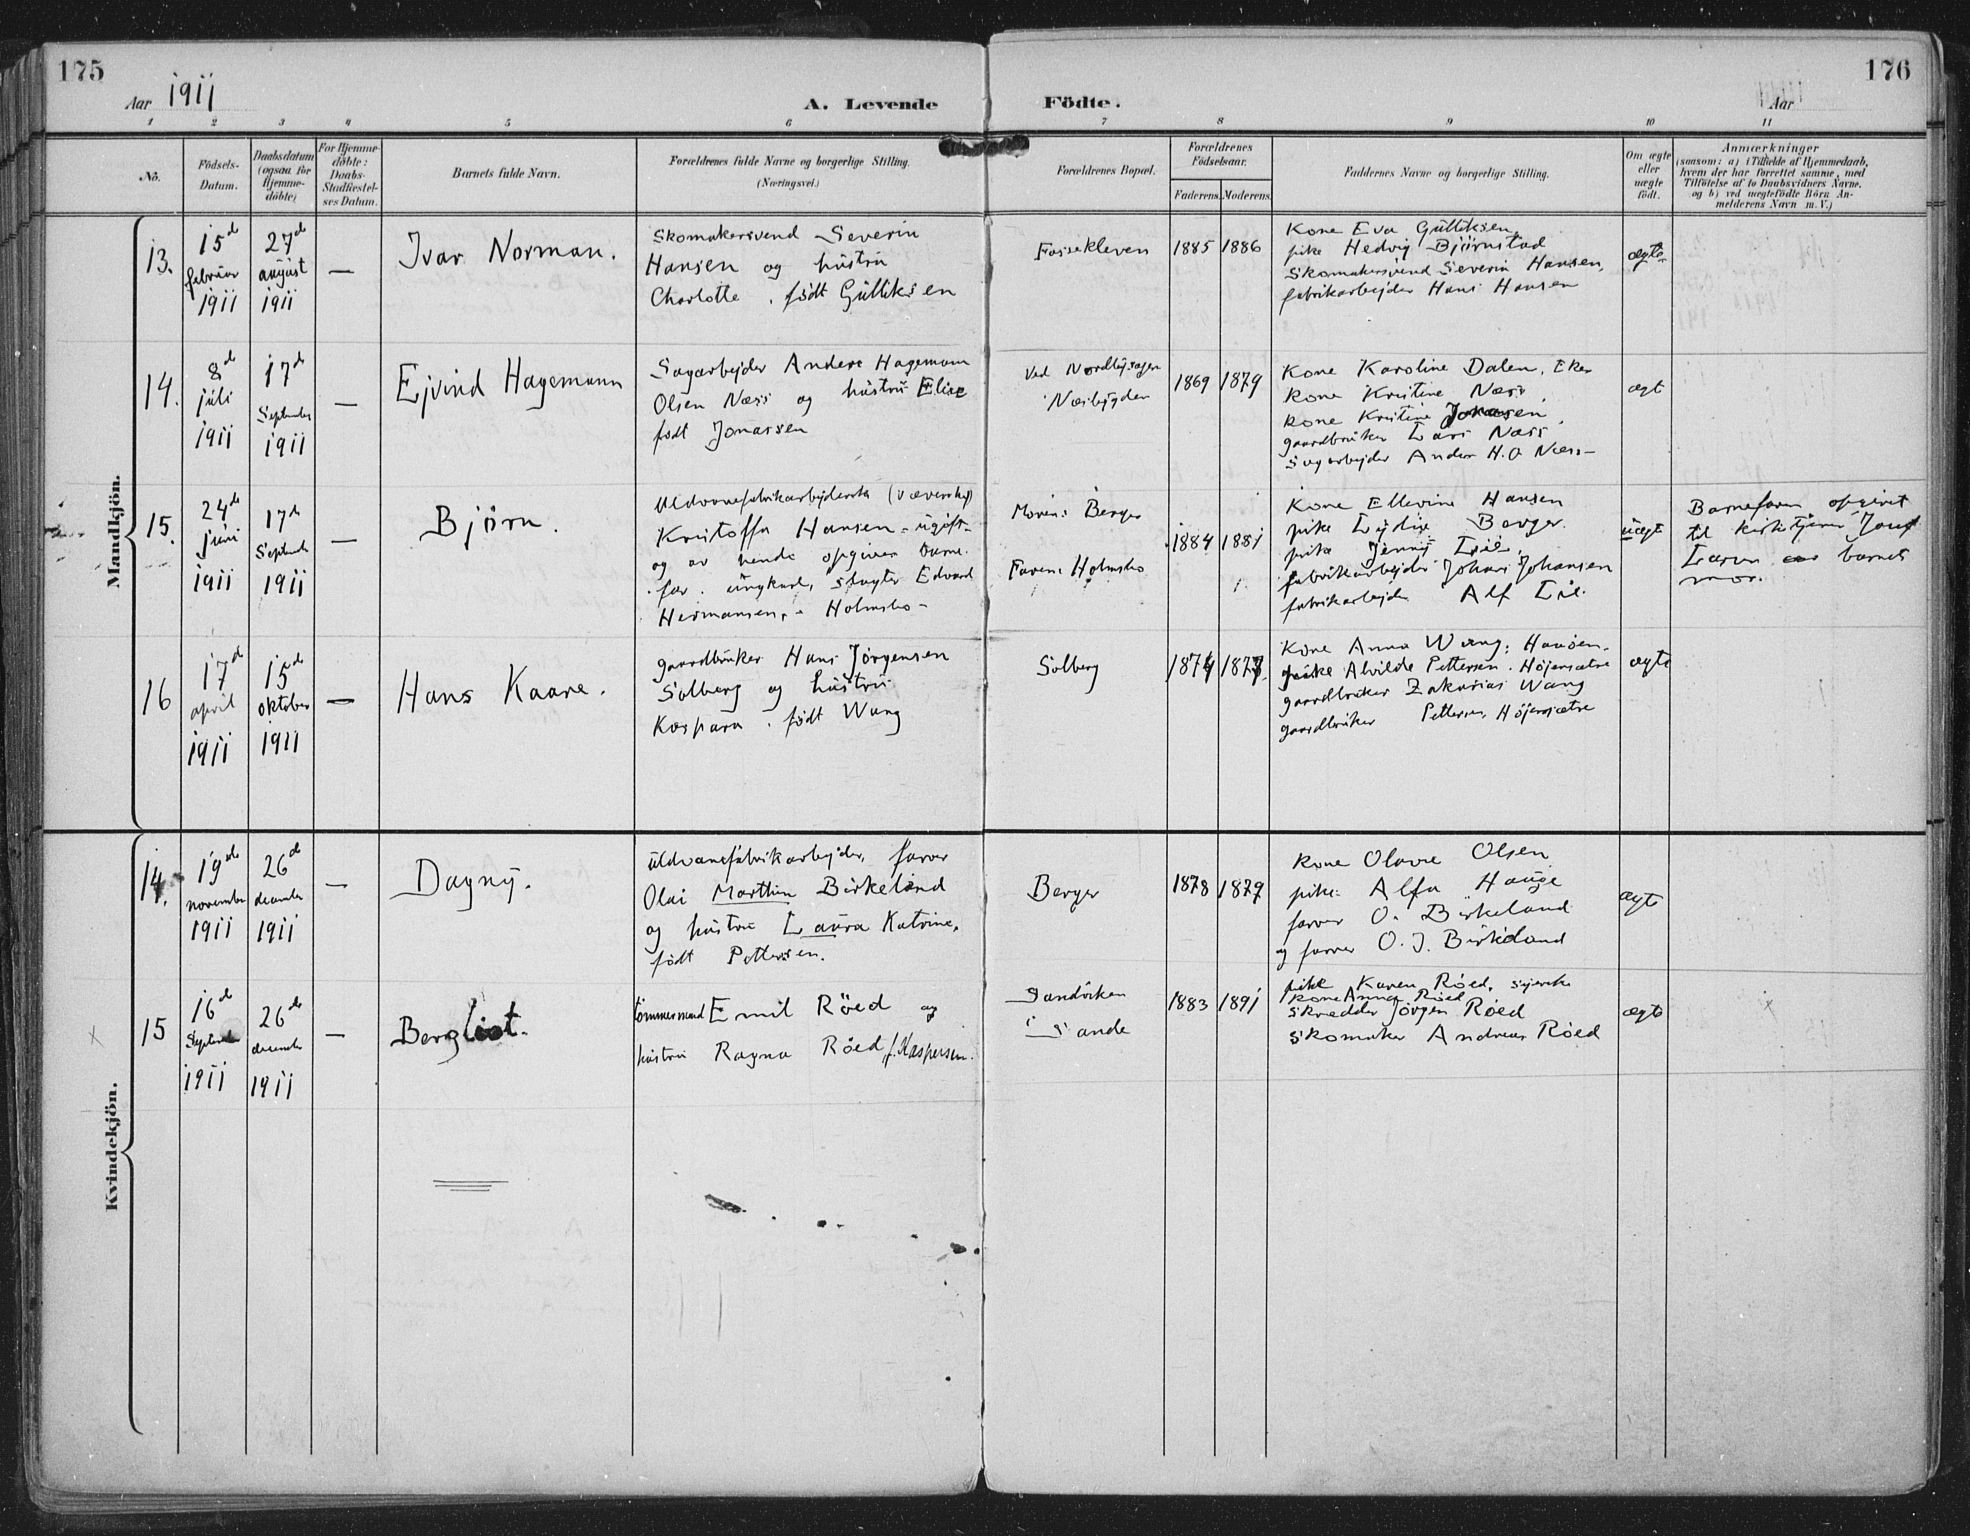 175
176
Aar 1911
A. Levende
Födte.
Aar
1 2 3 4 5 6 7 8 9 10 11
No.
Födsels-
Datum.
Daabsdatum
(ogsaa for
Hjemme-
döbte)
For Hjemme-
döbte:
Daabs-
Stadfæstel-
ses Datum.
Barnets fulde Navn.
Forældrenes fulde Navne og borgerlige Stilling.
(Næringsvei.)
Forældrenes Bopæl.
Forældrenes
Födselsaar.
Faderens.
Moderens.
Faddernes Navne og borgerlige Stilling.
Om ægte
eller
uægte
födt.
Anmærkninger
(saasom: a) i Tilfælde af Hjemmedaab,
hvem der har forrettet samme, med
Tilföielse af to Daabsvidners Navne,
og b) ved uægtefödte Börn An-
melderens Navn m. V.)
Mandkjön.
13.
15d
februar
1911
27d
august
1911
—
Ivar Norman.
Skomakersvend Severin
Hansen og hustru
Charlotte . født Gulliksen
Fossekleven
1885
1886
Kone Eva Gulliksen,
pike Hedvig Bjørnstad
Skomakersvend Severin Hansen,
fabrikarbejder Hans Hansen
ægte
14.
8d
juli
1911
17d
September
1911
—
Ejvind Hagemann
Sagarbejder Anders Hagemann
Olsen Næss og hustru Elise
født Jonassen
Ved Nordbysagen
Næsbygden
1869
1879
Kone Karoline Dalen, Eker
Kone Kristine Næss,
Kone Kristine Jonassen,
gaardbruker Lars Næss
Sagarbejder Anders H.O Næss
ægt
15.
24d
juni
1911
17d
September
1911
—
Bjørn.
Uldvarefabrikarbejderske
Kristoffa Hansen - ugift -
og av hende opgiven barne-
far . ungkarl, slagter Edvard
Hermansen, - Holmsbo -
Morens Berger
Farens Holmsbo
1884
1881
Kone Ellevine Hansen
pike Lydia Berger.
pike Jenny Lie,
fabrikarbejder Johan Johansen
fabrikarbejder Alf Lie.
uægt
Barnefaren opgivet
til kirketjener
Larsen barnets
mor.
16
17d
april
1911
15d
oktober
1911
—
Hans Kaare.
gaardbruker Hans Jörgensen
Solberg og hustru
Kaspara . født Wang
Solberg
1874
1877
Kone Anna Wang, Hansen.
pike Alvilde Pettersen. Höjensætre
gaardbruker Zakarias Wang
gaardbruker Pettersen, Höjensætre
ægte
Kvindekjön.
14.
19de
november
1911
26d
december
1911
—
Dagny.
Uldvarefabrikarbejder, farver
Olai Marthin Birkeland
og hustru Laura Katrine,
født Pettersen.
Berger
1878
1879
Kone Olave Olsen
pike: Alfa Hauge
farver O. Birkeland
og farver O. J. Birkeland
ægte
15
16d
September
1911
26de
december
1911
—
Bergliot.
tömmermand Emil Röed og
hustru Ragna Röed f. Kaspersen.
Sandviken
i Sande
1883
1891
pike Karen Röed, syerske
Kone Anna Röed
Skrædder Jörgen Röed
Skomaker Andreas Röed
ægte